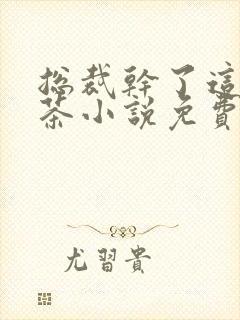 捴裁幹了這
茶小說免費
尤習貴